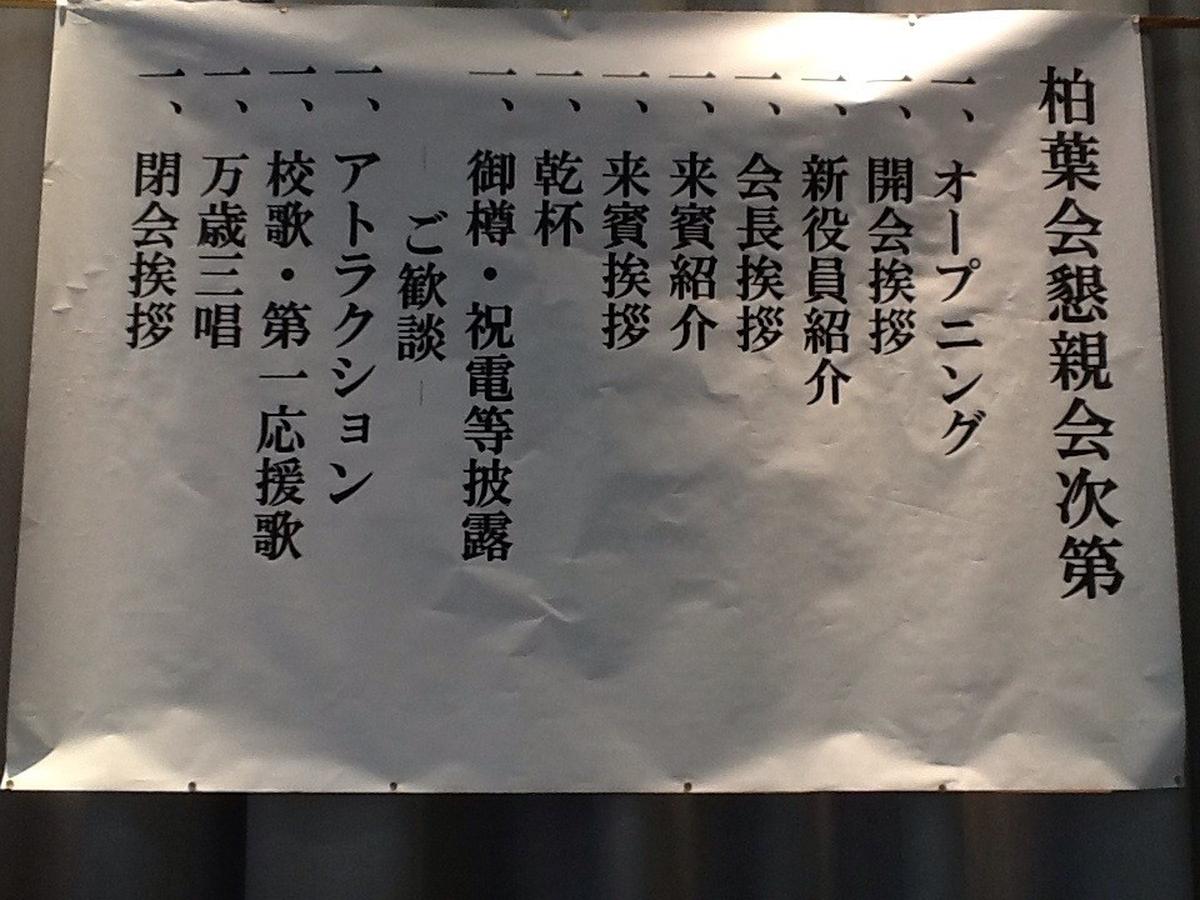 柏葉会懇親会次第
一、オープニング
一、開会挨拶
一、新役員紹介
一、会長挨拶
一、来賓紹介
一、来賓挨拶
一、乾杯
一、御樽・祝電等披露
― ご歓談 ―
一、アトラクション
一、校歌・第一応援歌
一、万歳三唱
一、閉会挨拶